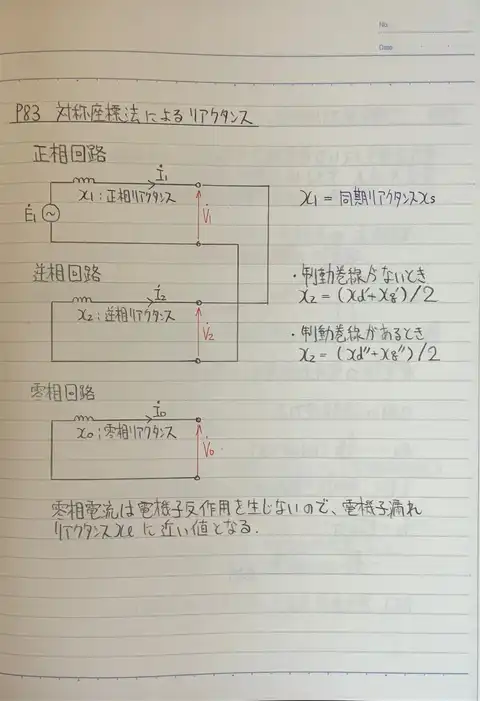 No.
Date
P83 対称座標法によるリアクタンス
正相回路
İ1
x1:正相リアクタンス
Ė1
V̇1
x1=同期リアクタンスxs
逆相回路
İ2
x2:逆相リアクタンス
V̇2
・制動巻線がないとき
x2=(xd'+xq')/2
・制動巻線があるとき
x2=(xd"+xq")/2
零相回路
İ0
x0:零相リアクタンス
V̇0
零相電流は電機子反作用を生じないので、電機子漏れ
リアクタンスxℓに近い値となる.